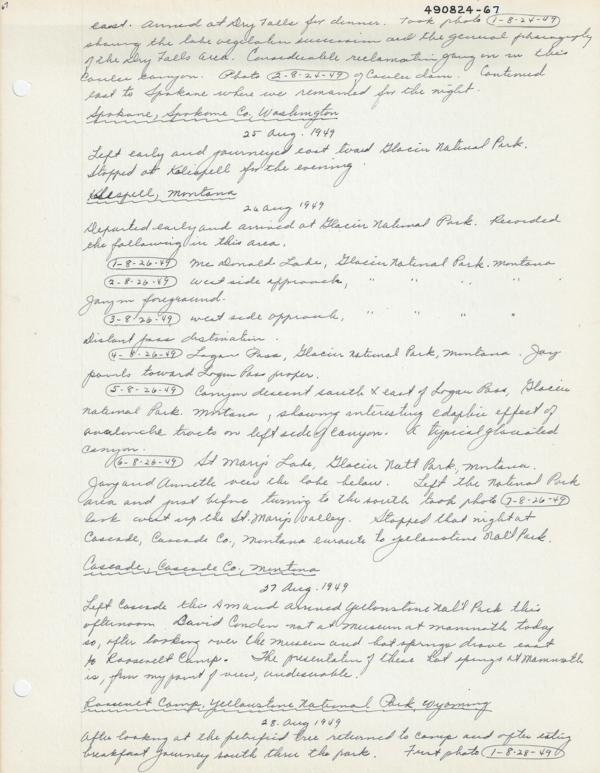 490824-67
east. Arrived at Dry Falls for dinner. Took photo 1-8-24-49
showing the lake vegetation succession and the general physiography
of the Dry Falls area. Considerable reclamation going on in this
Coulee canyon. Photo 2-8-24-49 of Coulee dam. Continued
east to Spokane where we remained for the night.
Spokane, Spokane Co, Washington
25 Aug. 1949
Left early and journeyed east toward Glacier National Park.
Stopped at Kalispell for the evening.
Kalispell, Montana
26 Aug 1949
Departed early and arrived at Glacier National Park. Recorded
the following in this area.
1-8-26-49 McDonald Lake, Glacier National Park, Montana
2-8-26-49 west side approach, " " " "
Jay in foreground.
3-8-26-49 west side approach, " " " "
Distant pass destination.
4-8-26-49 Logan Pass, Glacier National Park, Montana. Jay
points toward Logan Pass proper.
5-8-26-49 Canyon descent south & east of Logan Pass, Glacier
National Park, Montana, showing interesting edaphic effect of
avalanche tracts on left side of canyon. A typical glaciated
canyon.
6-8-26-49 St Mary's Lake, Glacier Nat'l Park, Montana.
Jay and Annette view the lake below. Left the National Park
area and just before turning to the south took photo 7-8-26-49
look west up the St. Mary's valley. Stopped that night at
Cascade, Cascade Co., Montana enroute to Yellowstone Nat'l Park.
Cascade, Cascade Co., Montana
27 Aug. 1949
Left Cascade this AM and arrived Yellowstone Nat'l Park this
afternoon. David Condon not at Museum at Mammoth today
so, after looking over the Museum and hot springs drove east
to Roosevelt Camp. The presentation of these hot springs at Mammoth
is, from my point of view, undesirable.
Roosevelt Camp, Yellowstone National Park, Wyoming
28 Aug 1949
After looking at the petrified tree returned to camp and after eating
breakfast journey south thru the park. First photo 1-8-28-49